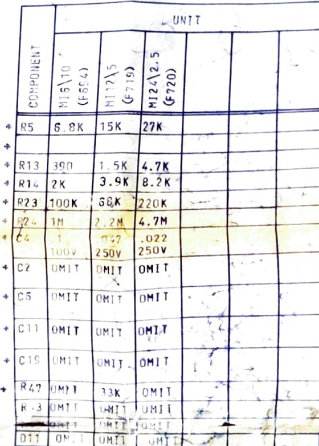 UNIT
COMPONENT
MI6\10 (F694)
MI12\5 (F719)
MI24\2.5 (F720)
* R5 6.8K 15K 27K
*
* R13 390 1.5K 4.7K
* R14 2K 3.9K 8.2K
* R23 100K 68K 220K
* R24 1M 2.2M 4.7M
* C4 .1 .047 .022
100V 250V 250V
* C2 OMIT OMIT OMIT
* C6 OMIT OMIT OMIT
* C11 OMIT OMIT OMIT
* C19 OMIT OMIT OMIT
* R47 OMIT 33K OMIT
OMIT OMIT OMIT
D11 OMIT OMIT OMIT